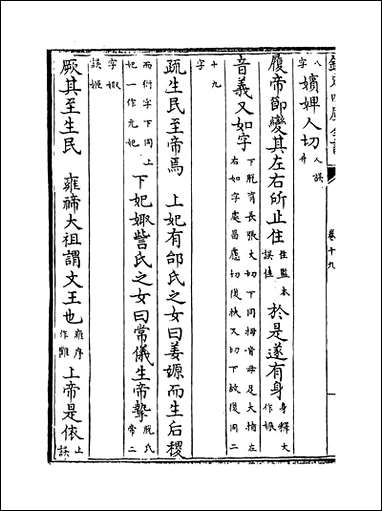 欽定四庫全書 卷十九
八字嬪婢人切人誤弁
履帝節變其左右所止住住監本誤 於是遂有身身釋文作娠
音義又如字下脱育長張丈切下同拇音母足大指左右如字處昌慮切復扶又切下故復同二
十九字
疏生民至帝焉 上妃有邰氏之女曰姜嫄而生后稷
而衍字下同上妃一作元妃 下妃娵訾氏之女曰常儀生帝摯脱氏常二
字娵誤姬
厥其至生民 雍禘大祖謂文王也雍序作雝 上帝是依上誤